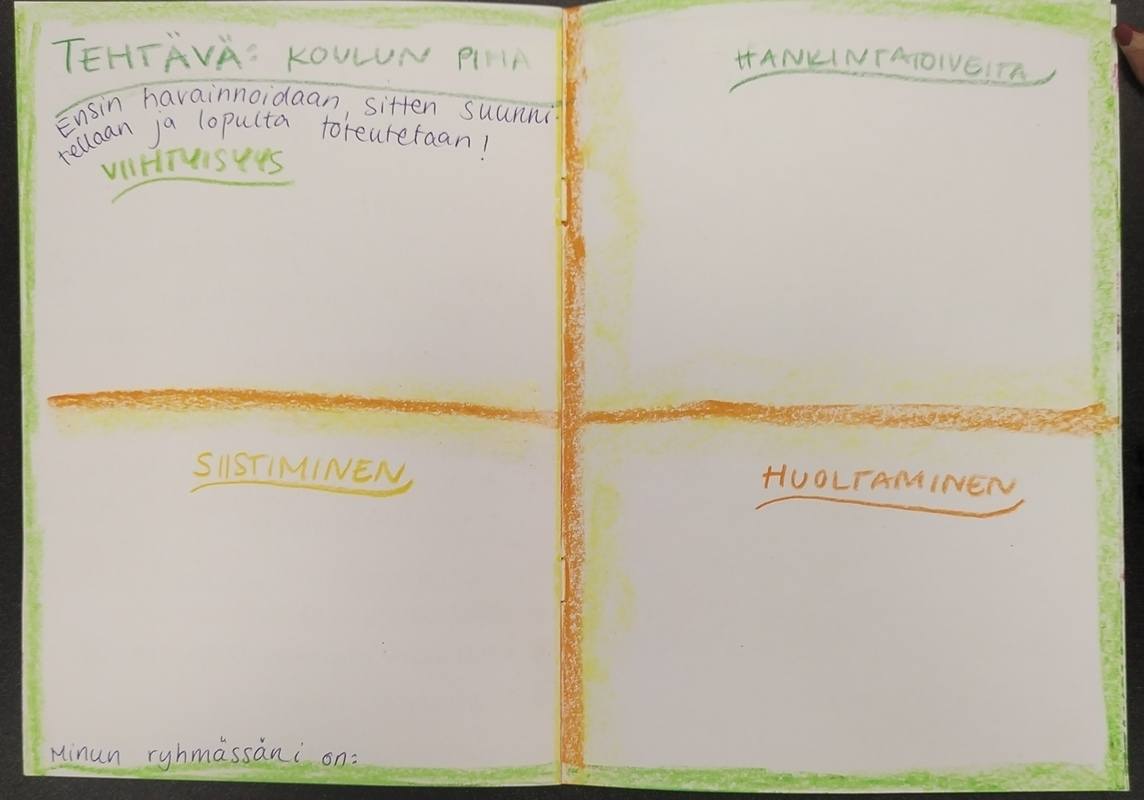 TEHTÄVÄ: KOULUN PIHA
Ensin havainnoidaan, sitten suunni-
tellaan ja lopulta toteutetaan!
VIIHTYISYYS
HANKINTATOIVEITA
SIISTIMINEN
HUOLTAMINEN
Minun ryhmässäni on: